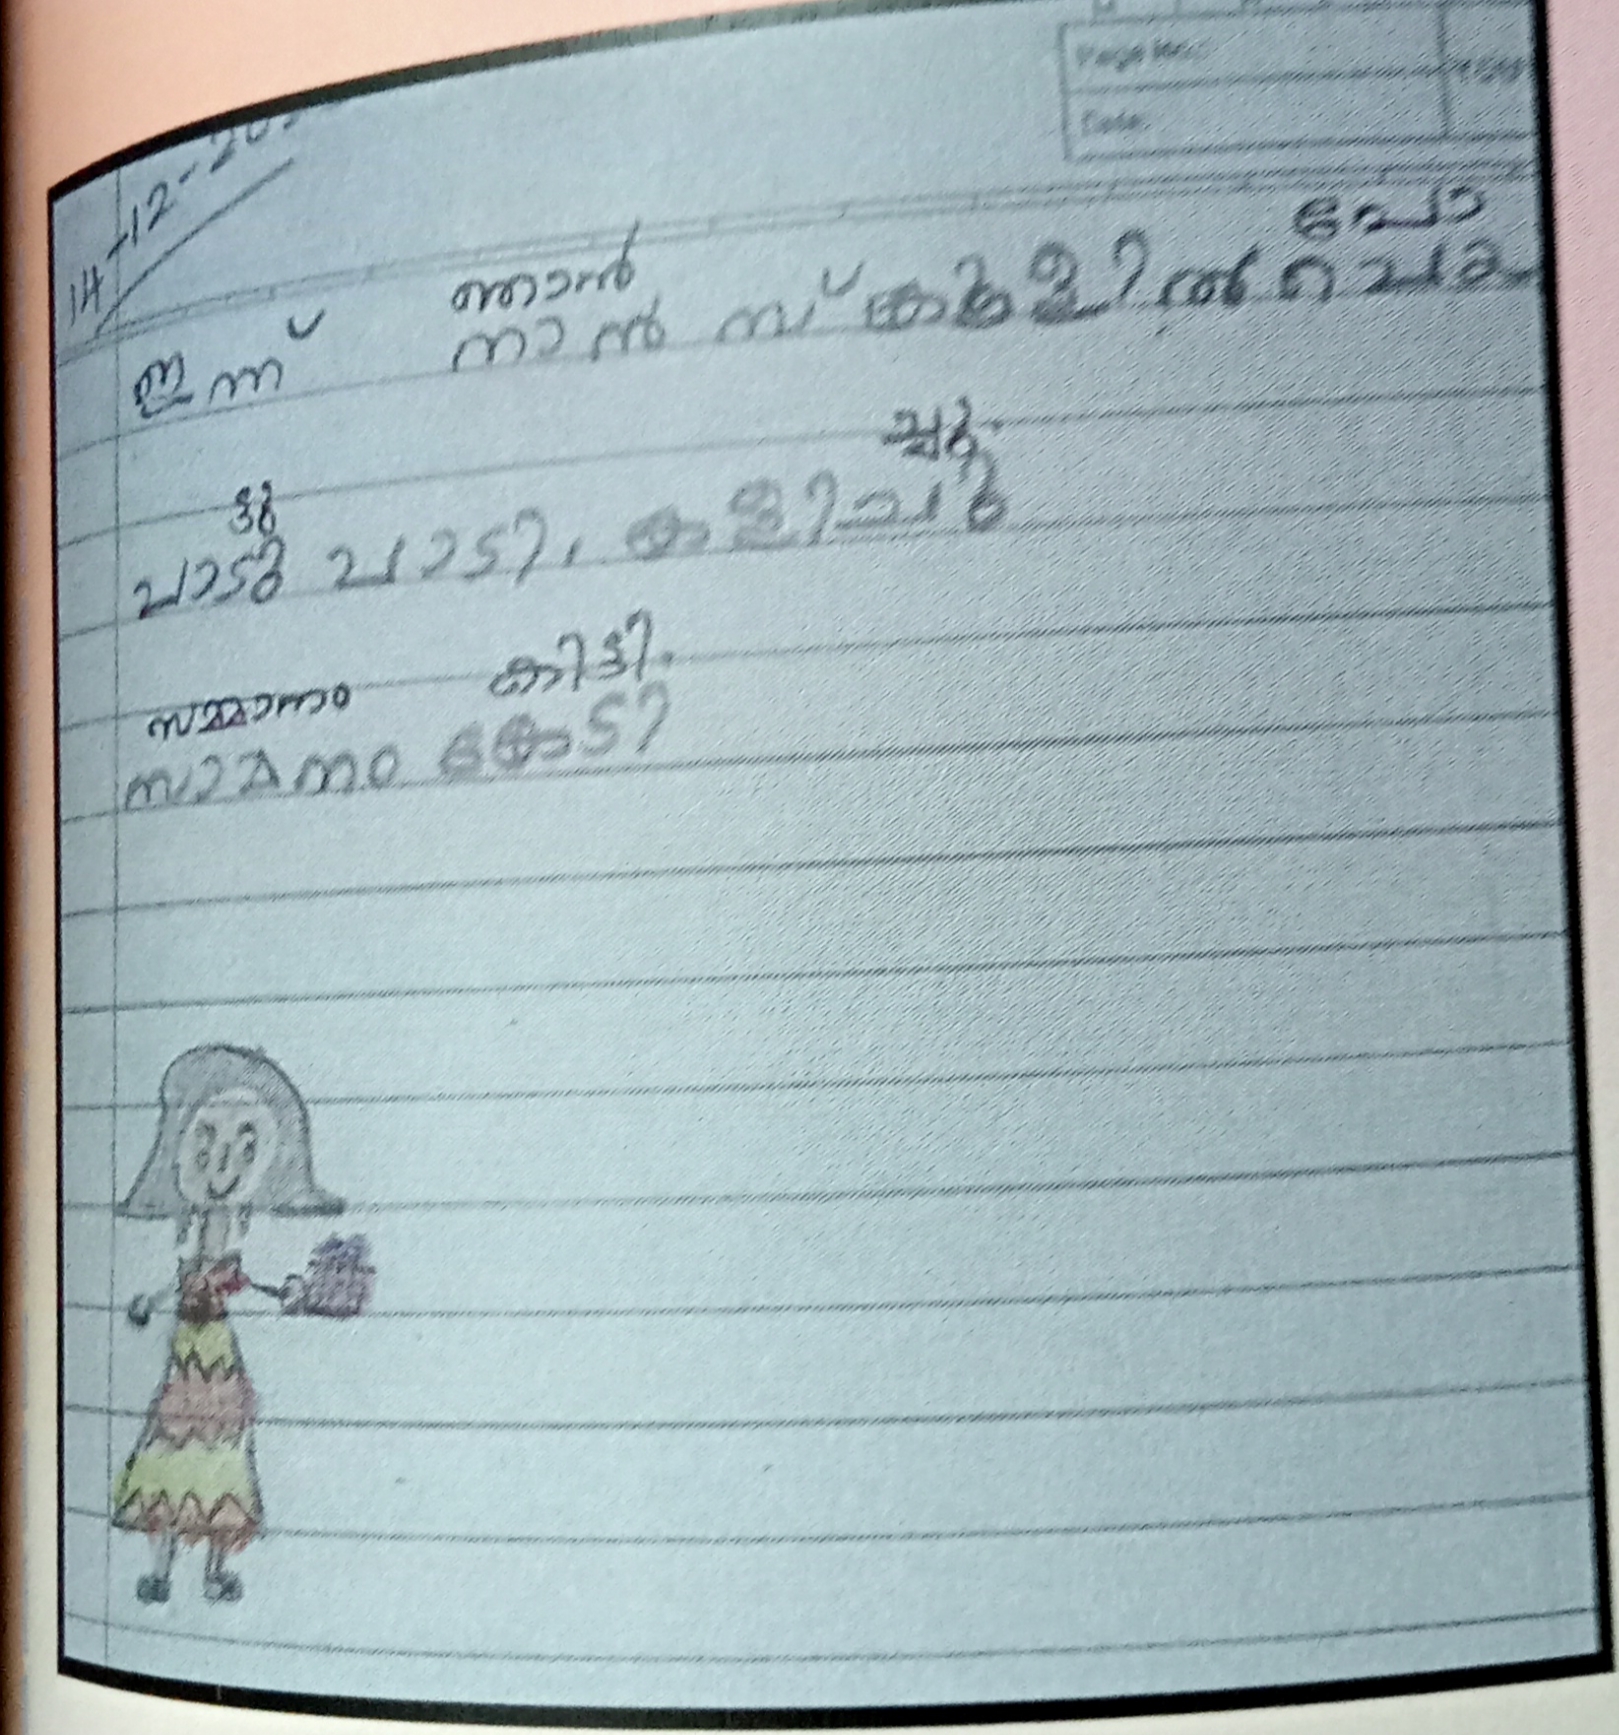 Page No.:
Date:
14-12-20
ഞാൻ പോ
ഇന്ന് നാൻ സ്കുളിൽ
ട്ടു ച്ചു.
പാടു പാടി, കളിചു
സമ്മാനം കിട്ടി.
സാമനം കേടി